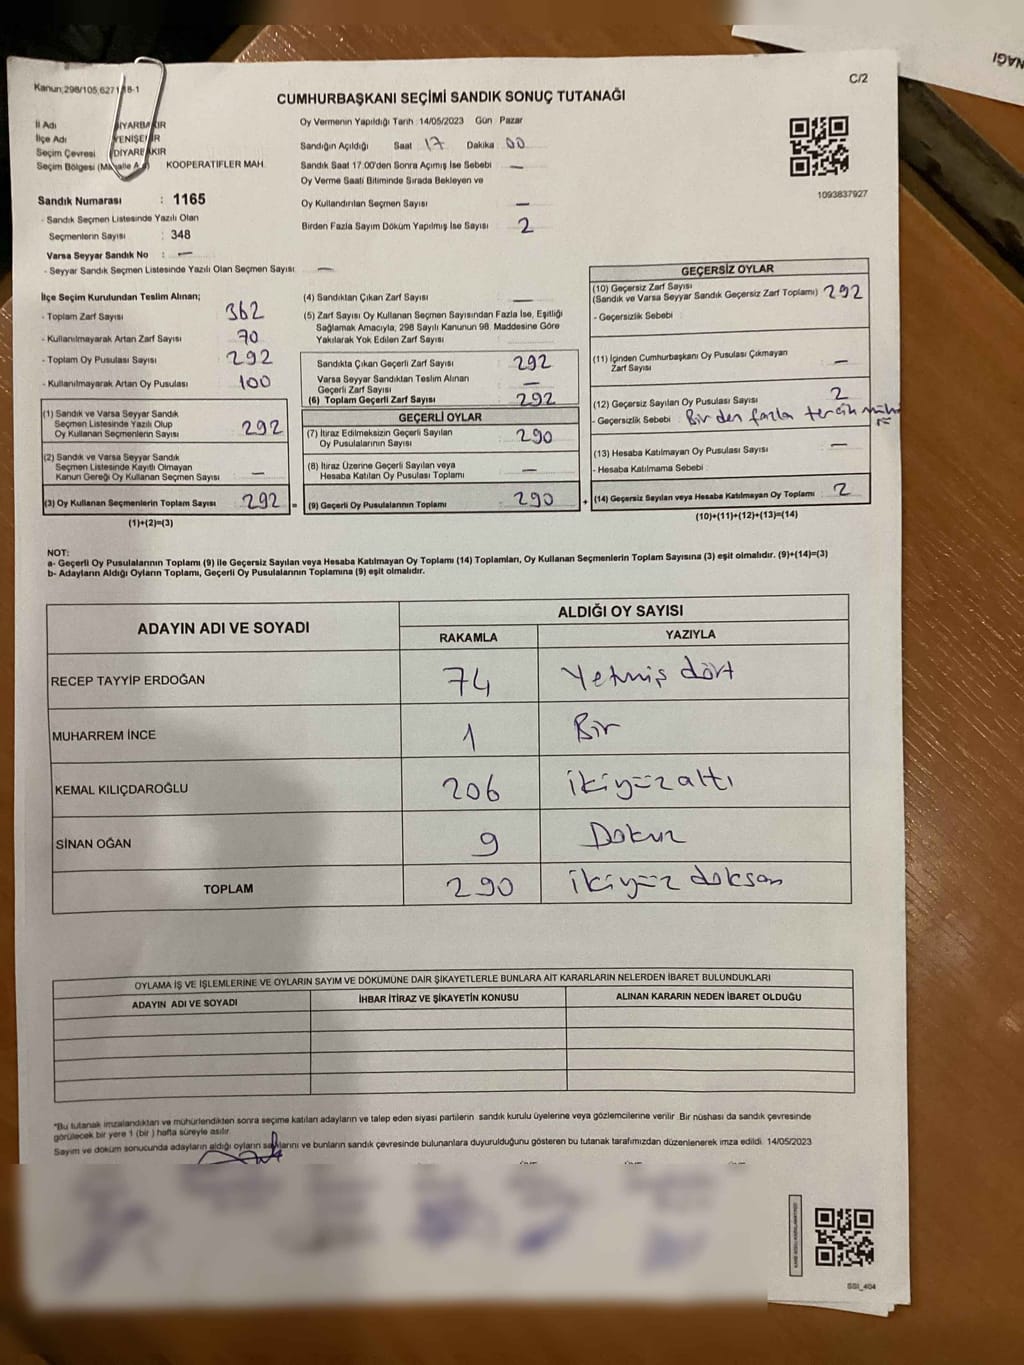 NAĞI
C/2
Kanun;298/105,6271/18-1
CUMHURBAŞKANI SEÇİMİ SANDIK SONUÇ TUTANAĞI
İl Adı DİYARBAKIR
İlçe Adı YENİŞEHİR
Seçim Çevresi DİYARBAKIR
Seçim Bölgesi KOOPERATİFLER MAH.
Oy Vermenin Yapıldığı Tarih :14/05/2023 Gün Pazar
Sandığın Açıldığı Saat 17 Dakika 00
Sandık Saat 17.00'den Sonra Açımış İse Sebebi —
Oy Verme Saati Bitiminde Sırada Bekleyen ve
Oy Kullandırılan Seçmen Sayısı —
Birden Fazla Sayım Döküm Yapılmış İse Sayısı 2
1093837927
Sandık Numarası : 1165
- Sandık Seçmen Listesinde Yazılı Olan
Seçmenlerin Sayısı : 348
Varsa Seyyar Sandık No : —
- Seyyar Sandık Seçmen Listesinde Yazılı Olan Seçmen Sayısı —
İlçe Seçim Kurulundan Teslim Alınan;
- Toplam Zarf Sayısı 362
- Kullanılmayarak Artan Zarf Sayısı 70
- Toplam Oy Pusulası Sayısı 292
- Kullanılmayarak Artan Oy Pusulası 100
(1) Sandık ve Varsa Seyyar Sandık
Seçmen Listesinde Yazılı Olup
Oy Kullanan Seçmenlerin Sayısı 292
(2) Sandık ve Varsa Seyyar Sandık
Seçmen Listesinde Kayıtlı Olmayan
Kanun Gereği Oy Kullanan Seçmen Sayısı —
(3) Oy Kullanan Seçmenlerin Toplam Sayısı 292 =
(1)+(2)=(3)
(4) Sandıktan Çıkan Zarf Sayısı —
(5) Zarf Sayısı Oy Kullanan Seçmen Sayısından Fazla İse, Eşitliği
Sağlamak Amacıyla, 298 Sayılı Kanunun 98. Maddesine Göre
Yakılarak Yok Edilen Zarf Sayısı —
Sandıkta Çıkan Geçerli Zarf Sayısı 292
Varsa Seyyar Sandıktan Teslim Alınan
Geçerli Zarf Sayısı —
(6) Toplam Geçerli Zarf Sayısı 292
GEÇERLİ OYLAR
(7) İtiraz Edilmeksizin Geçerli Sayılan
Oy Pusulalarının Sayısı 290
(8) İtiraz Üzerine Geçerli Sayılan veya
Hesaba Katılan Oy Pusulası Toplamı —
(9) Geçerli Oy Pusulalarının Toplamı 290 +
GEÇERSİZ OYLAR
(10) Geçersiz Zarf Sayısı
(Sandık ve Varsa Seyyar Sandık Geçersiz Zarf Toplamı) 292
- Geçersizlik Sebebi :
(11) İçinden Cumhurbaşkanı Oy Pusulası Çıkmayan
Zarf Sayısı —
(12) Geçersiz Sayılan Oy Pusulası Sayısı 2
- Geçersizlik Sebebi : Birden fazla tercih
(13) Hesaba Katılmayan Oy Pusulası Sayısı —
- Hesaba Katılmama Sebebi :
(14) Geçersiz Sayılan veya Hesaba Katılmayan Oy Toplamı 2
(10)+(11)+(12)+(13)=(14)
NOT:
a- Geçerli Oy Pusulalarının Toplamı (9) ile Geçersiz Sayılan veya Hesaba Katılmayan Oy Toplamı (14) Toplamları, Oy Kullanan Seçmenlerin Toplam Sayısına (3) eşit olmalıdır. (9)+(14)=(3)
b- Adayların Aldığı Oyların Toplamı, Geçerli Oy Pusulalarının Toplamına (9) eşit olmalıdır.
ADAYIN ADI VE SOYADI
ALDIĞI OY SAYISI
RAKAMLA YAZIYLA
RECEP TAYYİP ERDOĞAN 74 Yetmiş dört
MUHARREM İNCE 1 Bir
KEMAL KILIÇDAROĞLU 206 ikiyüz altı
SİNAN OĞAN 9 Dokuz
TOPLAM 290 ikiyüz doksan
OYLAMA İŞ VE İŞLEMLERİNE VE OYLARIN SAYIM VE DÖKÜMÜNE DAİR ŞİKAYETLERLE BUNLARA AİT KARARLARIN NELERDEN İBARET BULUNDUKLARI
ADAYIN ADI VE SOYADI İHBAR İTİRAZ VE ŞİKAYETİN KONUSU ALINAN KARARIN NEDEN İBARET OLDUĞU
*Bu tutanak imzalandıktan ve mühürlendikten sonra seçime katılan adayların ve talep eden siyasi partilerin sandık kurulu üyelerine veya gözlemcilerine verilir. Bir nüshası da sandık çevresinde
görülecek bir yere 1 (bir) hafta süreyle asılır.
Sayım ve döküm sonucunda adayların aldığı oyların sayılarını ve bunların sandık çevresinde bulunanlara duyurulduğunu gösteren bu tutanak tarafımızdan düzenlenerek imza edildi. 14/05/2023
SSI_404